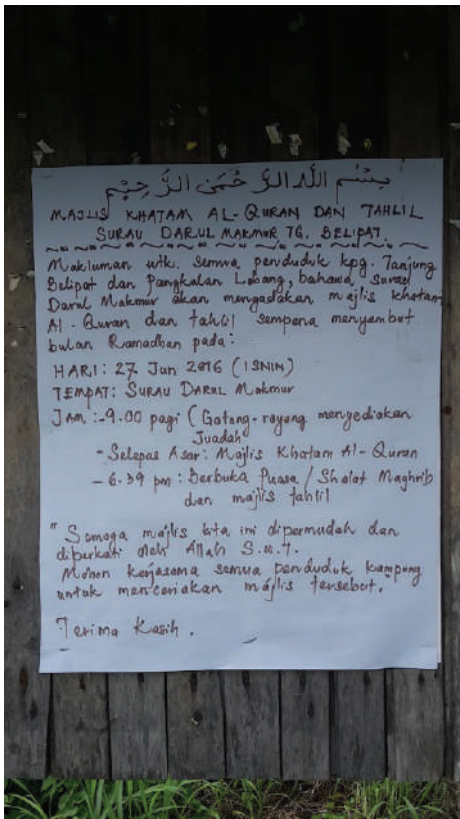 بسم الله الرحمن الرحيم
MAJLIS KHATAM AL-QURAN DAN TAHLIL
SURAU DARUL MAKMUR TG. BELIPAT
Makluman utk. semua penduduk kpg. Tanjung
Belipat dan Pangkalan Lobang, bahawa surau
Darul Makmur akan mengadakan majlis khatam
Al-Quran dan tahlil sempena menyambut
bulan Ramadhan pada:
HARI: 27 Jun 2016 (ISNIN)
TEMPAT: SURAU DARUL Makmur
JAM:-9.00 pagi (Gotong-royong menyediakan
Juadah
- Selepas Asar: Majlis Khatam Al-Quran
- 6.39 pm: Berbuka Puasa / Sholat Maghrib
dan majlis tahlil
"Semoga majlis kita ini dipermudah dan
diberkati oleh Allah S.w.t.
Mohon kerjasama semua penduduk kampong
untuk menceriakan majlis tersebut.
Terima Kasih.